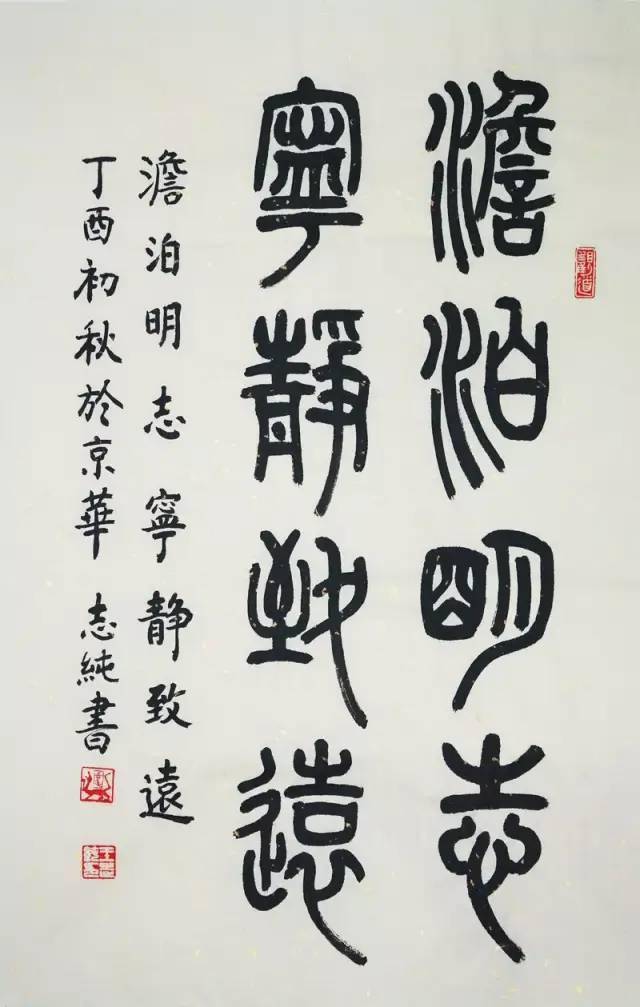 澹泊明志
寧靜致遠
澹泊明志寧靜致遠
丁酉初秋於京華 志純書